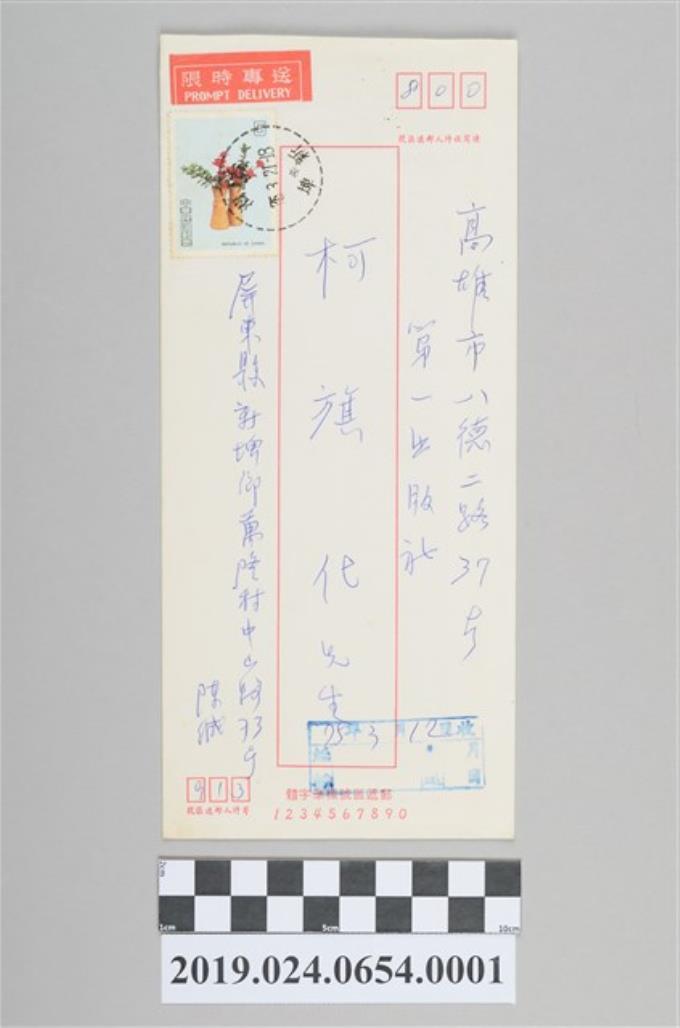 限時專送
PROMPT DELIVERY
800
請寫收件人郵遞區號
REPUBLIC OF CHINA
高雄市八德二路37号
第一出版社
柯旗化先生
屏東縣新埤鄉萬隆村中山路73号
陳誠
75年3月12日收
913
寄件人郵遞區號
郵遞區號標準字體
1234567890
2cm
1cm
5cm
10cm
2019.024.0654.0001